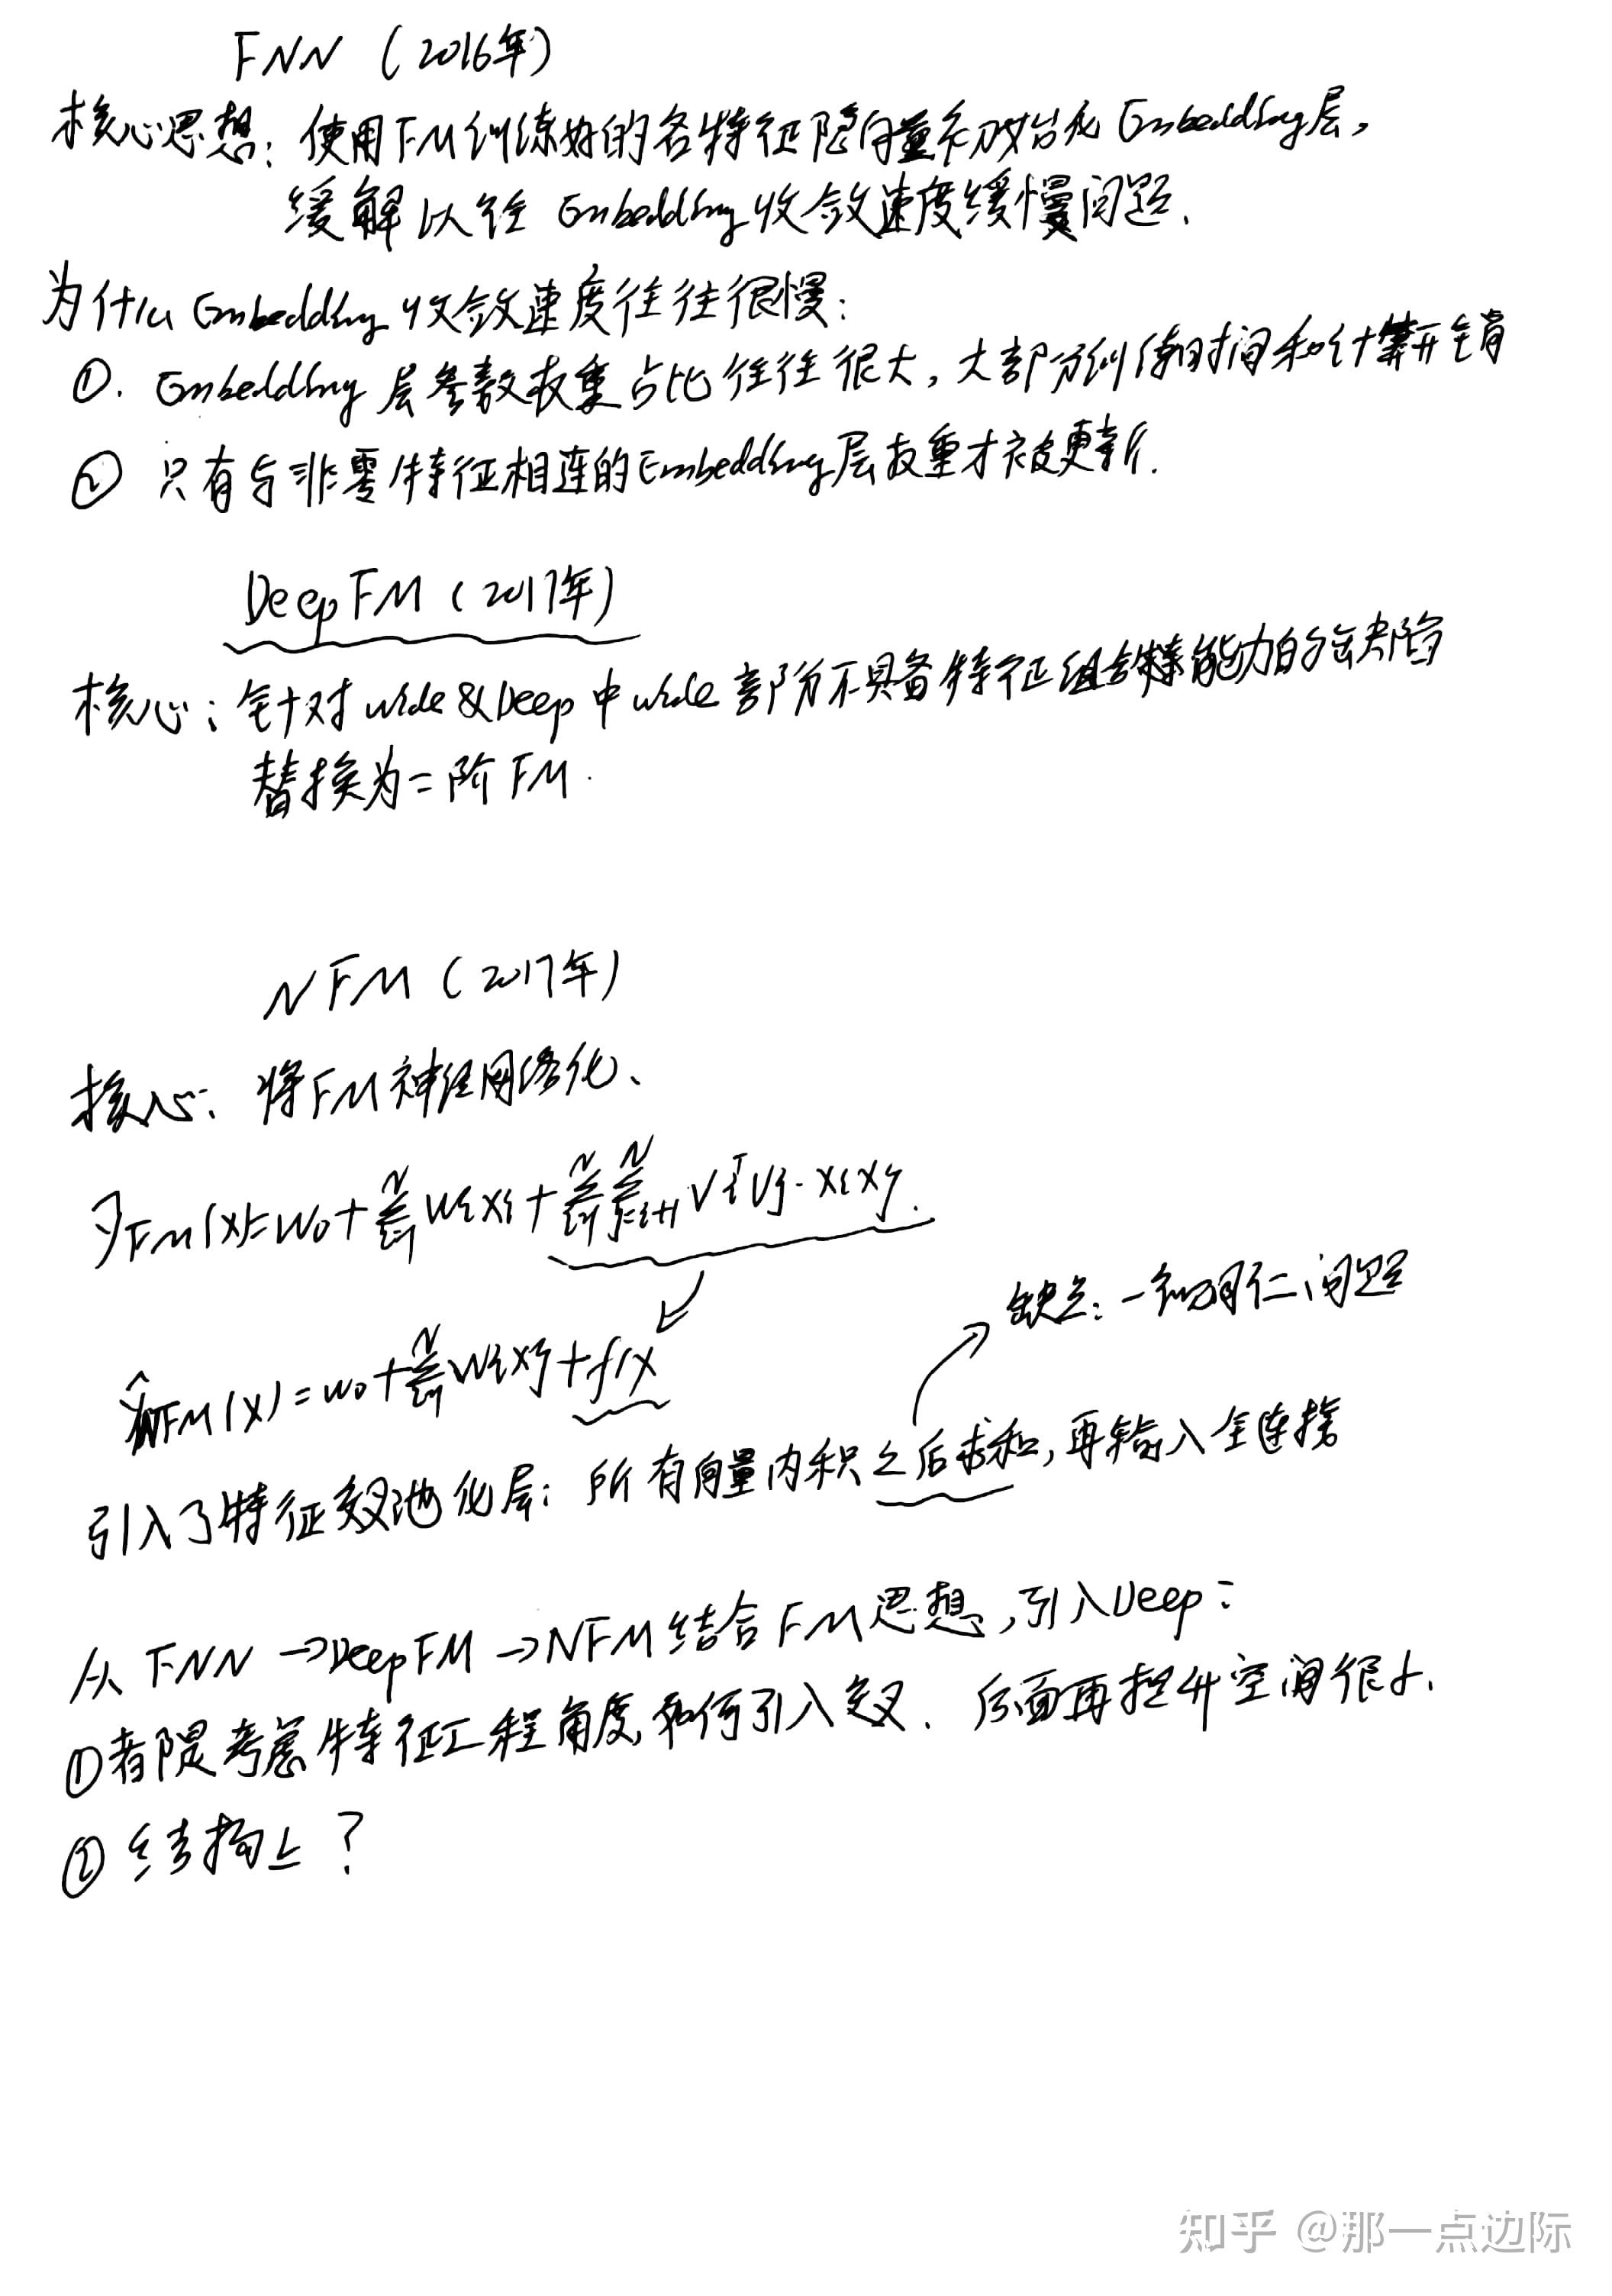 FNN (2016年)
核心思想: 使用FM训练好的各特征隐向量初始化Embedding层,
缓解以往Embedding收敛速度缓慢问题.
为什么Embedding收敛速度往往很慢:
①. Embedding层参数权重占比往往很大, 大部分训练时间和计算开销
② 只有与非零特征相连的Embedding层权重才被更新.
DeepFM (2017年)
核心: 针对wide&Deep中wide部分不具备特征组合能力的缺陷
替换为二阶FM.
NFM (2017年)
核心: 将FM神经网络化、
ŷFM(x)=w0+∑(i=1→N) wixi+∑(i=1→N)∑(j=i+1→N) viTvj·xixj.
缺点: 一视同仁问题
ŷNFM(x)=w0+∑(i=1→N) wixi+f(x
引入了特征交叉池化层: 所有向量内积之后求和, 再输入全连接
从FNN→DeepFM→NFM结合FM思想, 引入Deep:
①都是考虑特征工程角度,如何引入交叉、后面再提升空间很小.
② 结构上?
知乎 @那一点边际